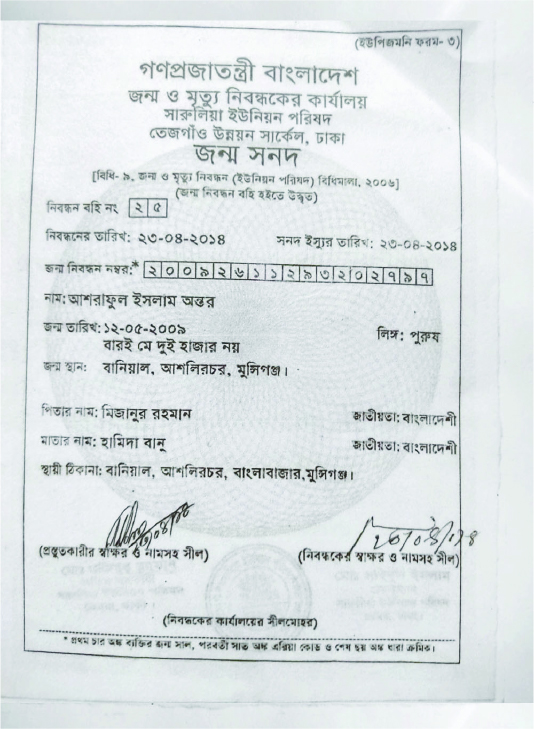 (ইউপিজমনি ফরম- ৩)
গণপ্রজাতন্ত্রী বাংলাদেশ
জন্ম ও মৃত্যু নিবন্ধকের কার্যালয়
সারুলিয়া ইউনিয়ন পরিষদ
তেজগাঁও উন্নয়ন সার্কেল, ঢাকা
জন্ম সনদ
[বিধি- ৯, জন্ম ও মৃত্যু নিবন্ধন (ইউনিয়ন পরিষদ) বিধিমালা, ২০০৬]
(জন্ম নিবন্ধন বহি হইতে উদ্ধৃত)
নিবন্ধন বহি নং ২৫
নিবন্ধনের তারিখ: ২৩-০৪-২০১৪ সনদ ইস্যুর তারিখ: ২৩-০৪-২০১৪
জন্ম নিবন্ধন নম্বর:* ২০০৯২৬১১২৯৩২০২৭৯৭
নাম: আশরাফুল ইসলাম অন্তর
জন্ম তারিখ: ১২-০৫-২০০৯ লিঙ্গ: পুরুষ
বারই মে দুই হাজার নয়
জন্ম স্থান: বানিয়াল, আশলিরচর, মুন্সিগঞ্জ।
পিতার নাম: মিজানুর রহমান জাতীয়তা: বাংলাদেশী
মাতার নাম: হামিদা বানু জাতীয়তা: বাংলাদেশী
স্থায়ী ঠিকানা: বানিয়াল, আশলিরচর, বাংলাবাজার,মুন্সিগঞ্জ।
(প্রস্তুতকারীর স্বাক্ষর ও নামসহ সীল) (নিবন্ধকের স্বাক্ষর ও নামসহ সীল)
(নিবন্ধকের কার্যালয়ের সীলমোহর)
* প্রথম চার অঙ্ক ব্যক্তির জন্ম সাল, পরবর্তী সাত অঙ্ক এরিয়া কোড ও শেষ ছয় অঙ্ক ধারা ক্রমিক।